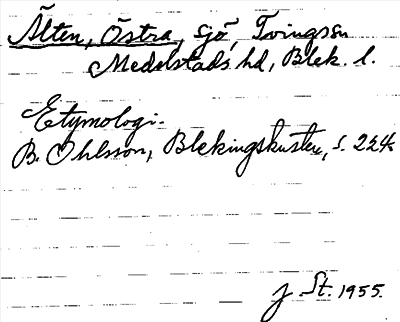 Älten, Östra, sjö, Tvings sn
Medelstads hd, Blek. l.
Etymologi.
B. Ohlsson, Blekingskusten, s. 224
J. St. 1955.